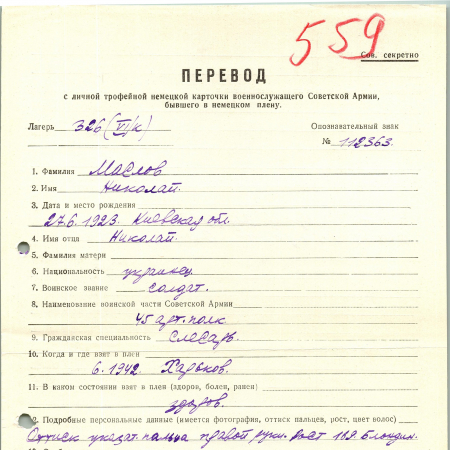 559
Сов. секретно
ПЕРЕВОД
с личной трофейной немецкой карточки военнослужащего Советской Армии,
бывшего в немецком плену.
Лагерь 326 (VI/к) Опознавательный знак
№ 112363.
1. Фамилия Маслов
2. Имя Николай.
3. Дата и место рождения
27.6.1923. Киевская обл.
4. Имя отца Николай.
5. Фамилия матери
6. Национальность украинец
7. Воинское звание солдат.
8. Наименование воинской части Советской Армии
45 арт. полк
9. Гражданская специальность слесарь.
10. Когда и где взят в плен
6.1942. Харьков.
11. В каком состоянии взят в плен (здоров, болен, ранен)
здоров.
2. Подробные персональные данные (имеется фотография, оттиск пальцев, рост, цвет волос)
Оттиск указат. пальца правой руки. рост 119. Блондин.